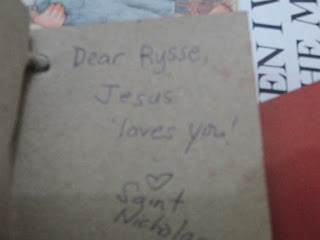 Dear Rysse,
Jesus
loves you!
♡
Saint
Nicholas